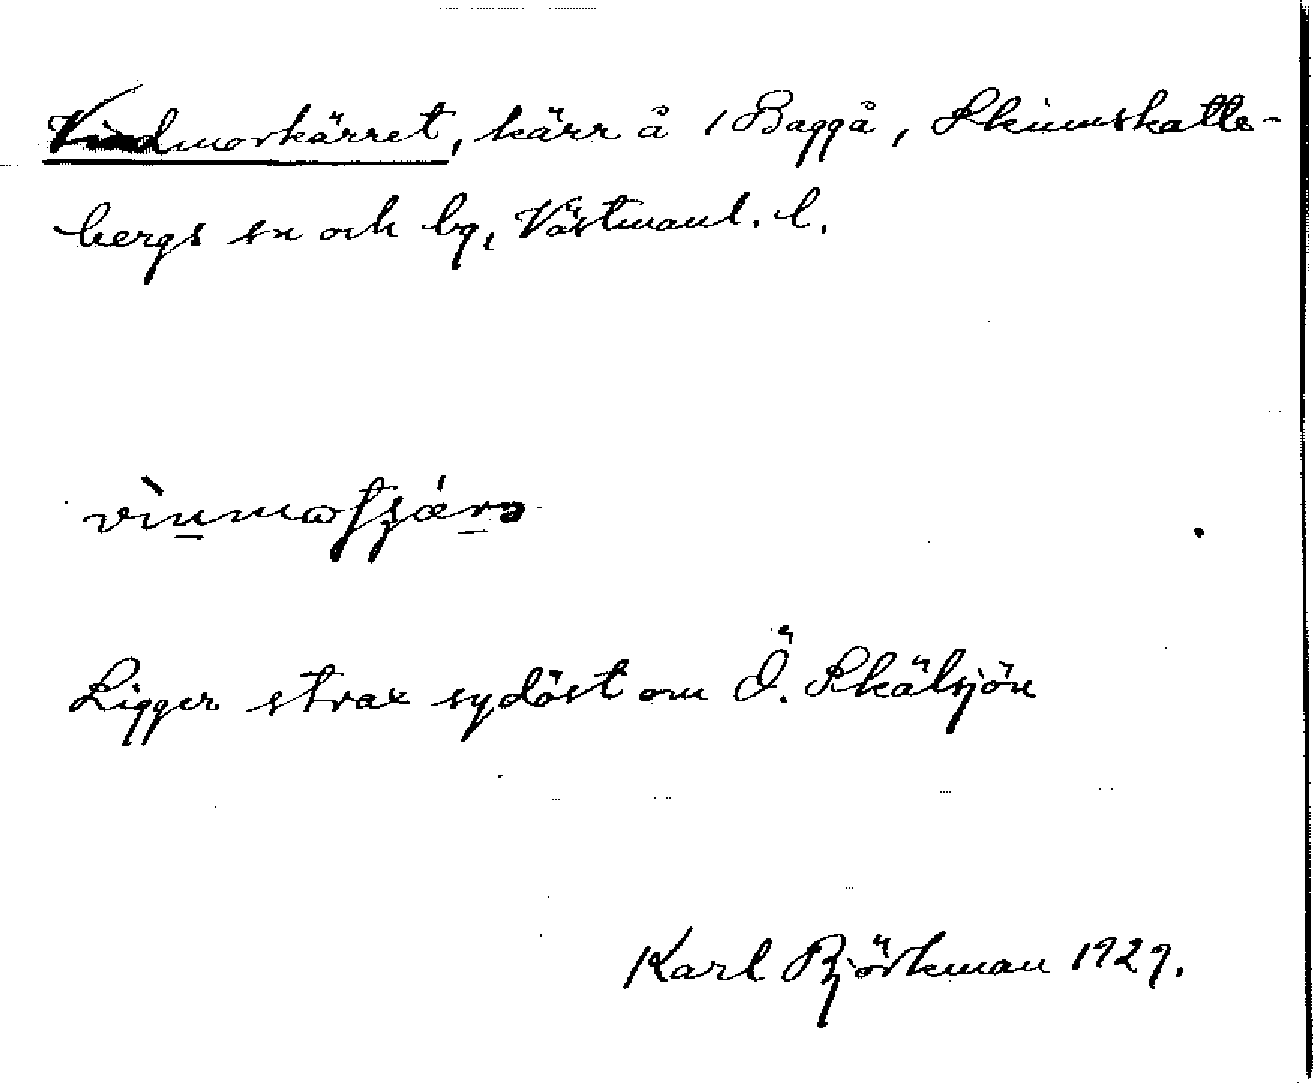 Vindmorkärret, kärr å 1 Baggå, Skinnskatte-
bergs sn och bg, Västmanl. l.
Ligger strax sydöst om Ö. Skälsjön
Karl Björkman 1929.